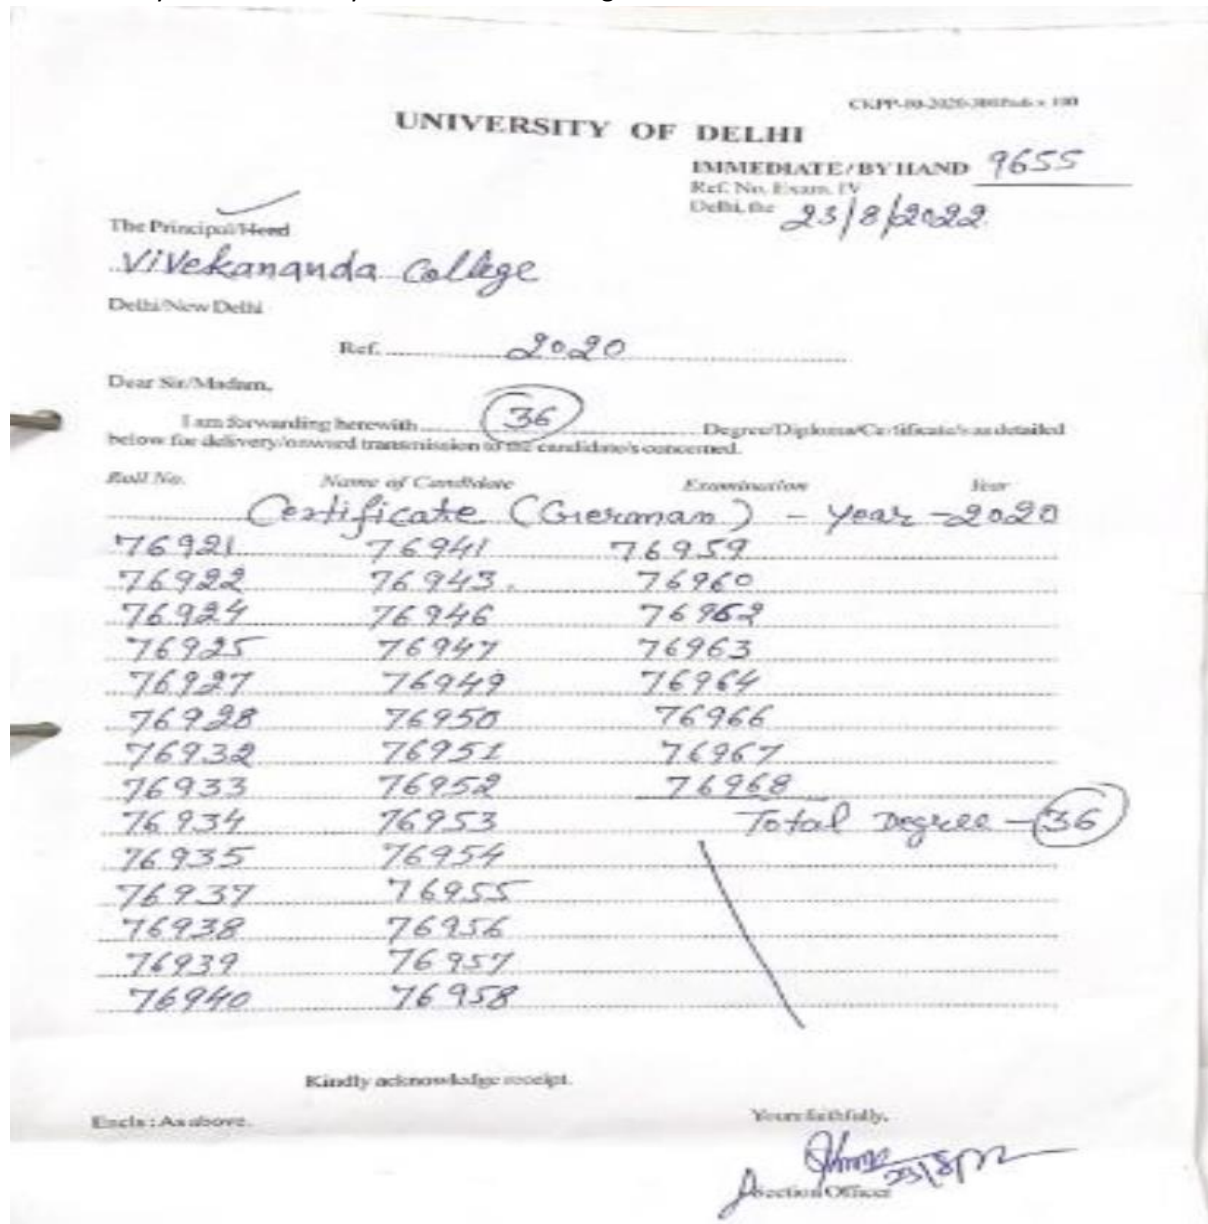 CKPP-
UNIVERSITY OF DELHI
IMMEDIATE/BY HAND 9655
Ref. No. Exam. IV
Delhi, the 23/8/2022
The Principal/Head
Vivekananda College
Delhi/New Delhi
Ref. 2020
Dear Sir/Madam,
I am forwarding herewith 36 Degree/Diploma/Certificate/s as detailed
below for delivery/onward transmission to the candidate/s concerned.
Roll No. Name of Candidate Examination Year
Certificate (German) - year - 2020
76921 76941 76959
76922 76943 76960
76924 76946 76962
76925 76947 76963
76927 76949 76964
76928 76950 76966
76932 76951 76967
76933 76952 76968
76934 76953 Total Degree - 36
76935 76954
76937 76955
76938 76956
76939 76957
76940 76958
Kindly acknowledge receipt.
Encls : As above.
Yours faithfully,
Section Officer